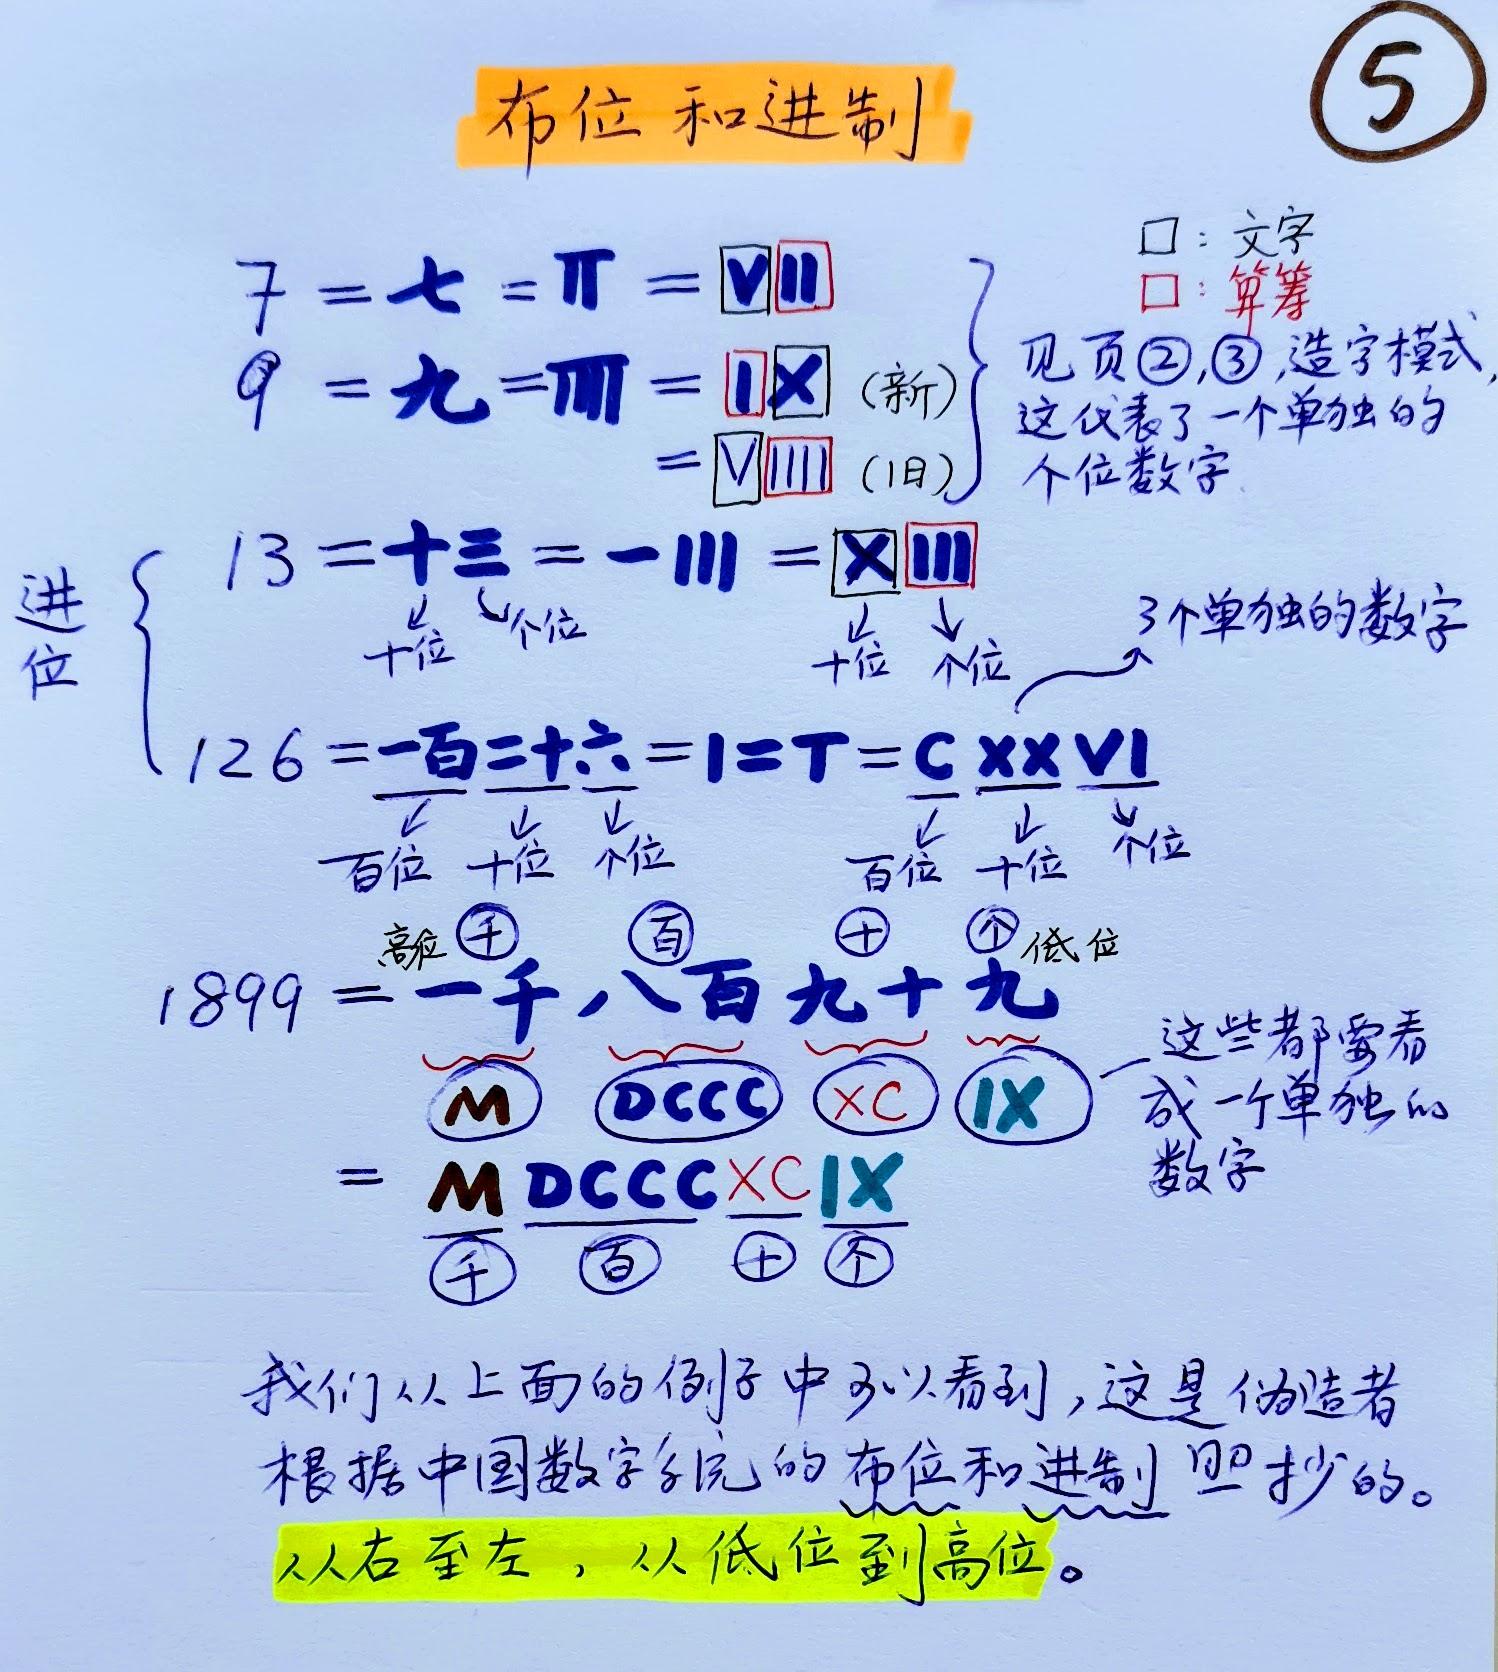 ⑤
布位和进制
□：文字
□：算筹
7 = 七 = 𝍦 = VII
9 = 九 = 𝍨 = IX (新)
= VIIII (旧)
见页②,③,造字模式,
这代表了一个单独的
个位数字
进位
13 = 十三 = 一III = XIII
十位 个位 十位 个位
3个单独的数字
126 = 一百二十六 = I=T = C XX VI
百位 十位 个位 百位 十位 个位
高位 千 百 十 个 低位
1899 = 一千八百九十九
M DCCC XC IX
这些都要看
成一个单独的
数字
= M DCCC XC IX
千 百 十 个
我们从上面的例子中可以看到,这是伪造者
根据中国数字系统的布位和进制照抄的。
从右至左，从低位到高位。